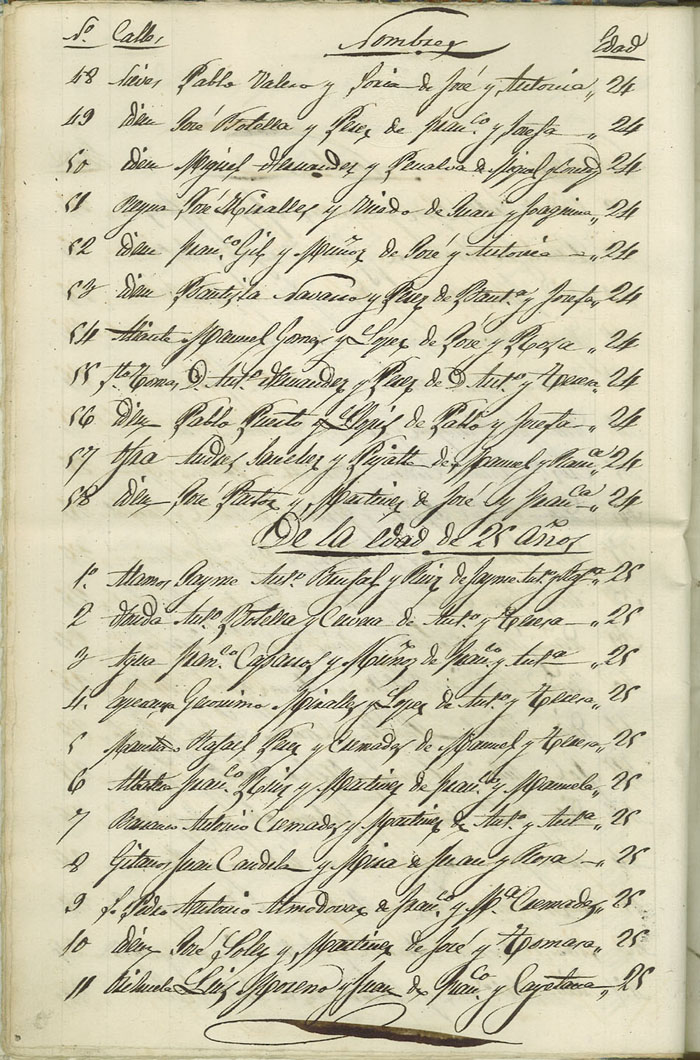 N.º Calles Nombres Edad
48 Nieves Pablo Valero y Soria de José y Antonia „ 24
49 idem José Botella y Perez de Fran.co y Josefa „ 24
50 idem Miguel Hernandez y Penalva de Miguel y 24
51 Reyna José Miralles y de Juan y Joaquina „ 24
52 idem Fran.co Gil y Muñoz de José y Antonia — „ 24
53 idem Bautista Navarro y Perez de Baut.a y Josefa „ 24
54 Manuel Gomez y Lopez de Jose y Rosa „ 24
55 Sto. Tomas D. Ant.º Hernandez y Perez de D. Ant.º y Teresa „ 24
56 idem Pablo Puerto y Llopis de Pablo y Josefa „ 24
57 Andres Sanchez y de Manuel y Fran.ca „ 24
58 idem José Pastor y Martinez de José y Fran.ca „ 24
De la edad de 25 años
1.º Alamos Jayme Ant.º y Ruiz de Jayme Ant.º y „ 25
2 Ant.º Botella y Cervera de Ant.º y Teresa „ 25
3 Fran.co Caparros y Muñoz de Fran.co y Ant.a „ 25
4. Esperanza Geronimo Miralles y Lopez de Ant.º y Teresa „ 25
5 Rafael Perez y Cremades de Manuel y Teresa „ 25
6 Fran.co Ruiz y Martinez de Fran.co y Manuela „ 25
7 Barranco Antonio Cremades y Martinez de Ant.º y Ant.a „ 25
8 Gitanos Juan Candela y Mira de Juan y Rosa — „ 25
9 S. Pedro Antonio Almodovar de Fran.co y M.a Cremades „ 25
10 idem José Soler y Martinez de José y Tomasa „ 25
11 Orihuela Luis Moreno y Juan de Fran.co y Cayetana „ 25